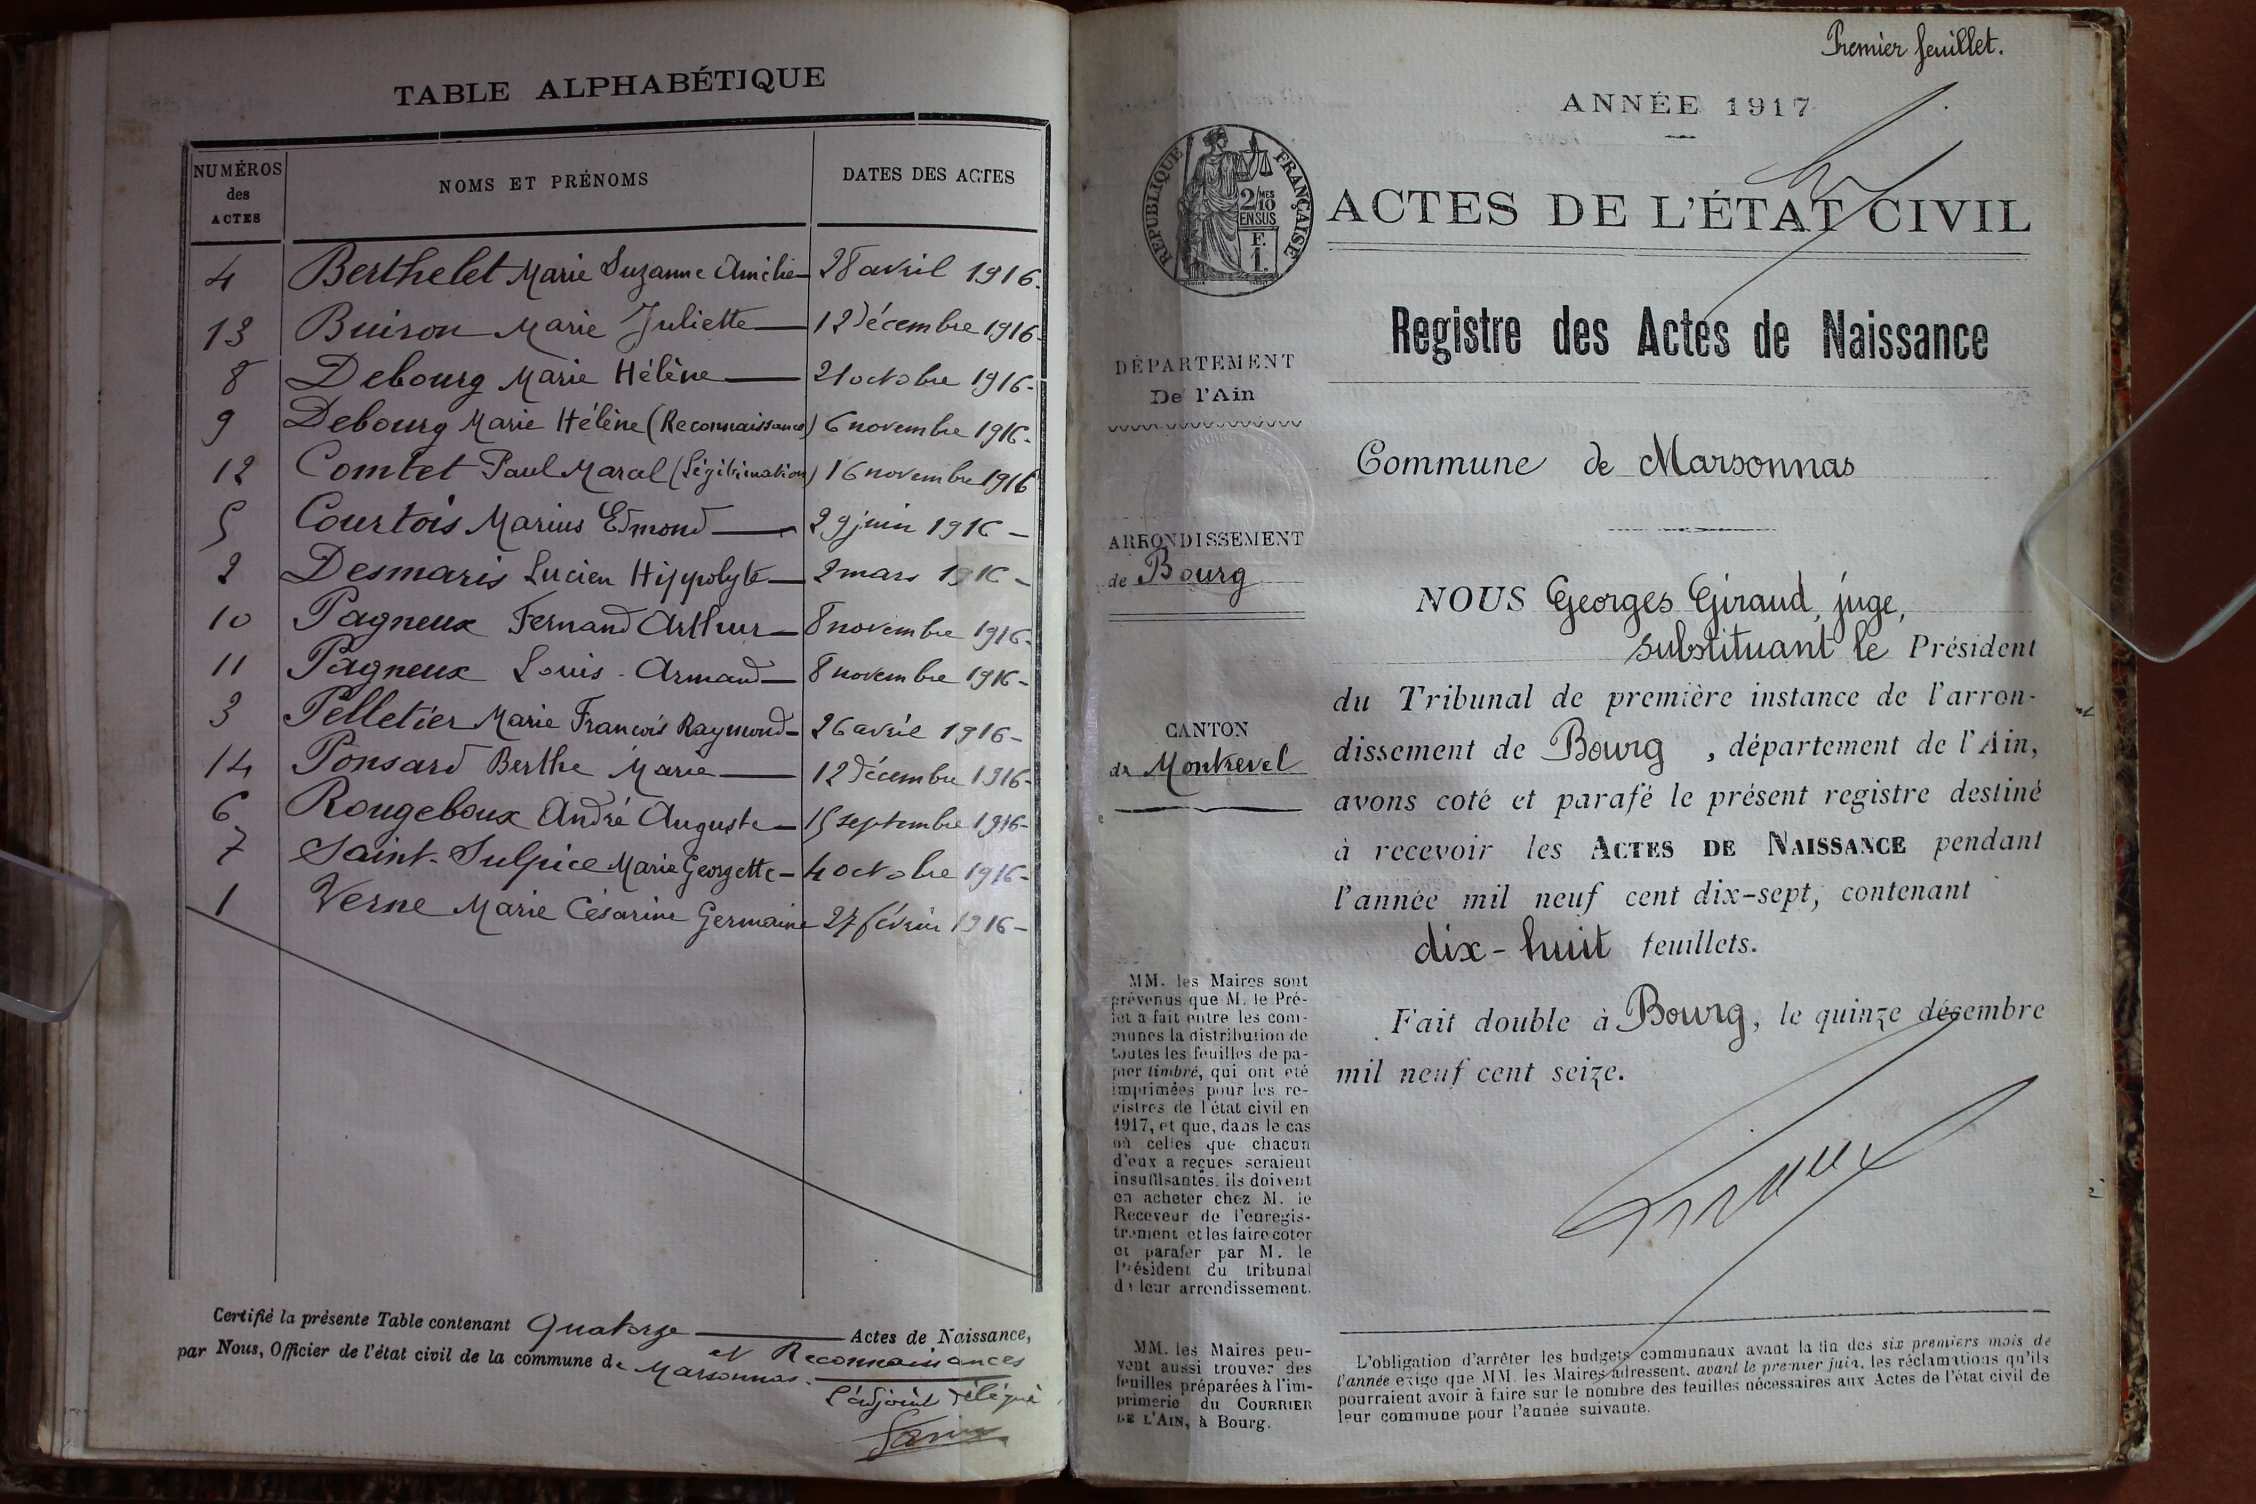 TABLE ALPHABÉTIQUE
NUMÉROS des ACTES
NOMS ET PRÉNOMS
DATES DES ACTES
4 Berthelet Marie Suzanne Amélie 28 avril 1916.
13 Buiron Marie Juliette 12 Décembre 1916.
8 Debourg Marie Hélène 21 octobre 1916-
9 Debourg Marie Hélène (Reconnaissance) 6 novembre 1916.
12 Comtet Paul Marcel (Légitimation) 16 novembre 1916
5 Courtois Marius Edmond 29 juin 1916 -
2 Desmaris Lucien Hippolyte 2 mars 1916 -
10 Pagneux Fernand Arthur 8 novembre 1916.
11 Pagneux Louis-Armand 8 novembre 1916-
3 Pelletier Marie François Raymond 26 avril 1916-
14 Ponsard Berthe Marie 12 Décembre 1916-
6 Rougeboux André Auguste 15 septembre 1916-
7 Saint-Sulpice Marie Georgette 4 octobre 1916-
1 Verne Marie Césarine Germaine 27 février 1916-
Certifié la présente Table contenant Quatorze Actes de Naissance,
et Reconnaissances
par Nous, Officier de l'état civil de la commune de Marsonnas.
L'adjoint Délégué
Premier feuillet.
ANNÉE 1917
RÉPUBLIQUE FRANÇAISE
2/10 MES
EN SUS
F.
1.
ACTES DE L'ÉTAT CIVIL
Registre des Actes de Naissance
DÉPARTEMENT
De l'Ain
Commune de Marsonnas
ARRONDISSEMENT
de Bourg
CANTON
de Montrevel
NOUS Georges Giraud, juge,
substituant le Président
du Tribunal de première instance de l'arron-
dissement de Bourg, département de l'Ain,
avons coté et parafé le présent registre destiné
à recevoir les ACTES DE NAISSANCE pendant
l'année mil neuf cent dix-sept, contenant
dix-huit feuillets.
Fait double à Bourg, le quinze décembre
mil neuf cent seize.
MM. les Maires sont
prévenus que M. le Pré-
fet a fait entre les com-
munes la distribution de
toutes les feuilles de pa-
pier timbré, qui ont été
imprimées pour les re-
gistres de l'état civil en
1917, et que, dans le cas
où celles que chacun
d'eux a reçues seraient
insuffisantes, ils doivent
en acheter chez M. le
Receveur de l'enregis-
trement et les faire coter
et parafer par M. le
Président du tribunal
de leur arrondissement.
MM. les Maires peu-
vent aussi trouver des
feuilles préparées à l'im-
primerie du COURRIER
DE L'AIN, à Bourg.
L'obligation d'arrêter les budgets communaux avant la fin des six premiers mois de
l'année exige que MM. les Maires adressent, avant le premier juin, les réclamations qu'ils
pourraient avoir à faire sur le nombre des feuilles nécessaires aux Actes de l'état civil de
leur commune pour l'année suivante.